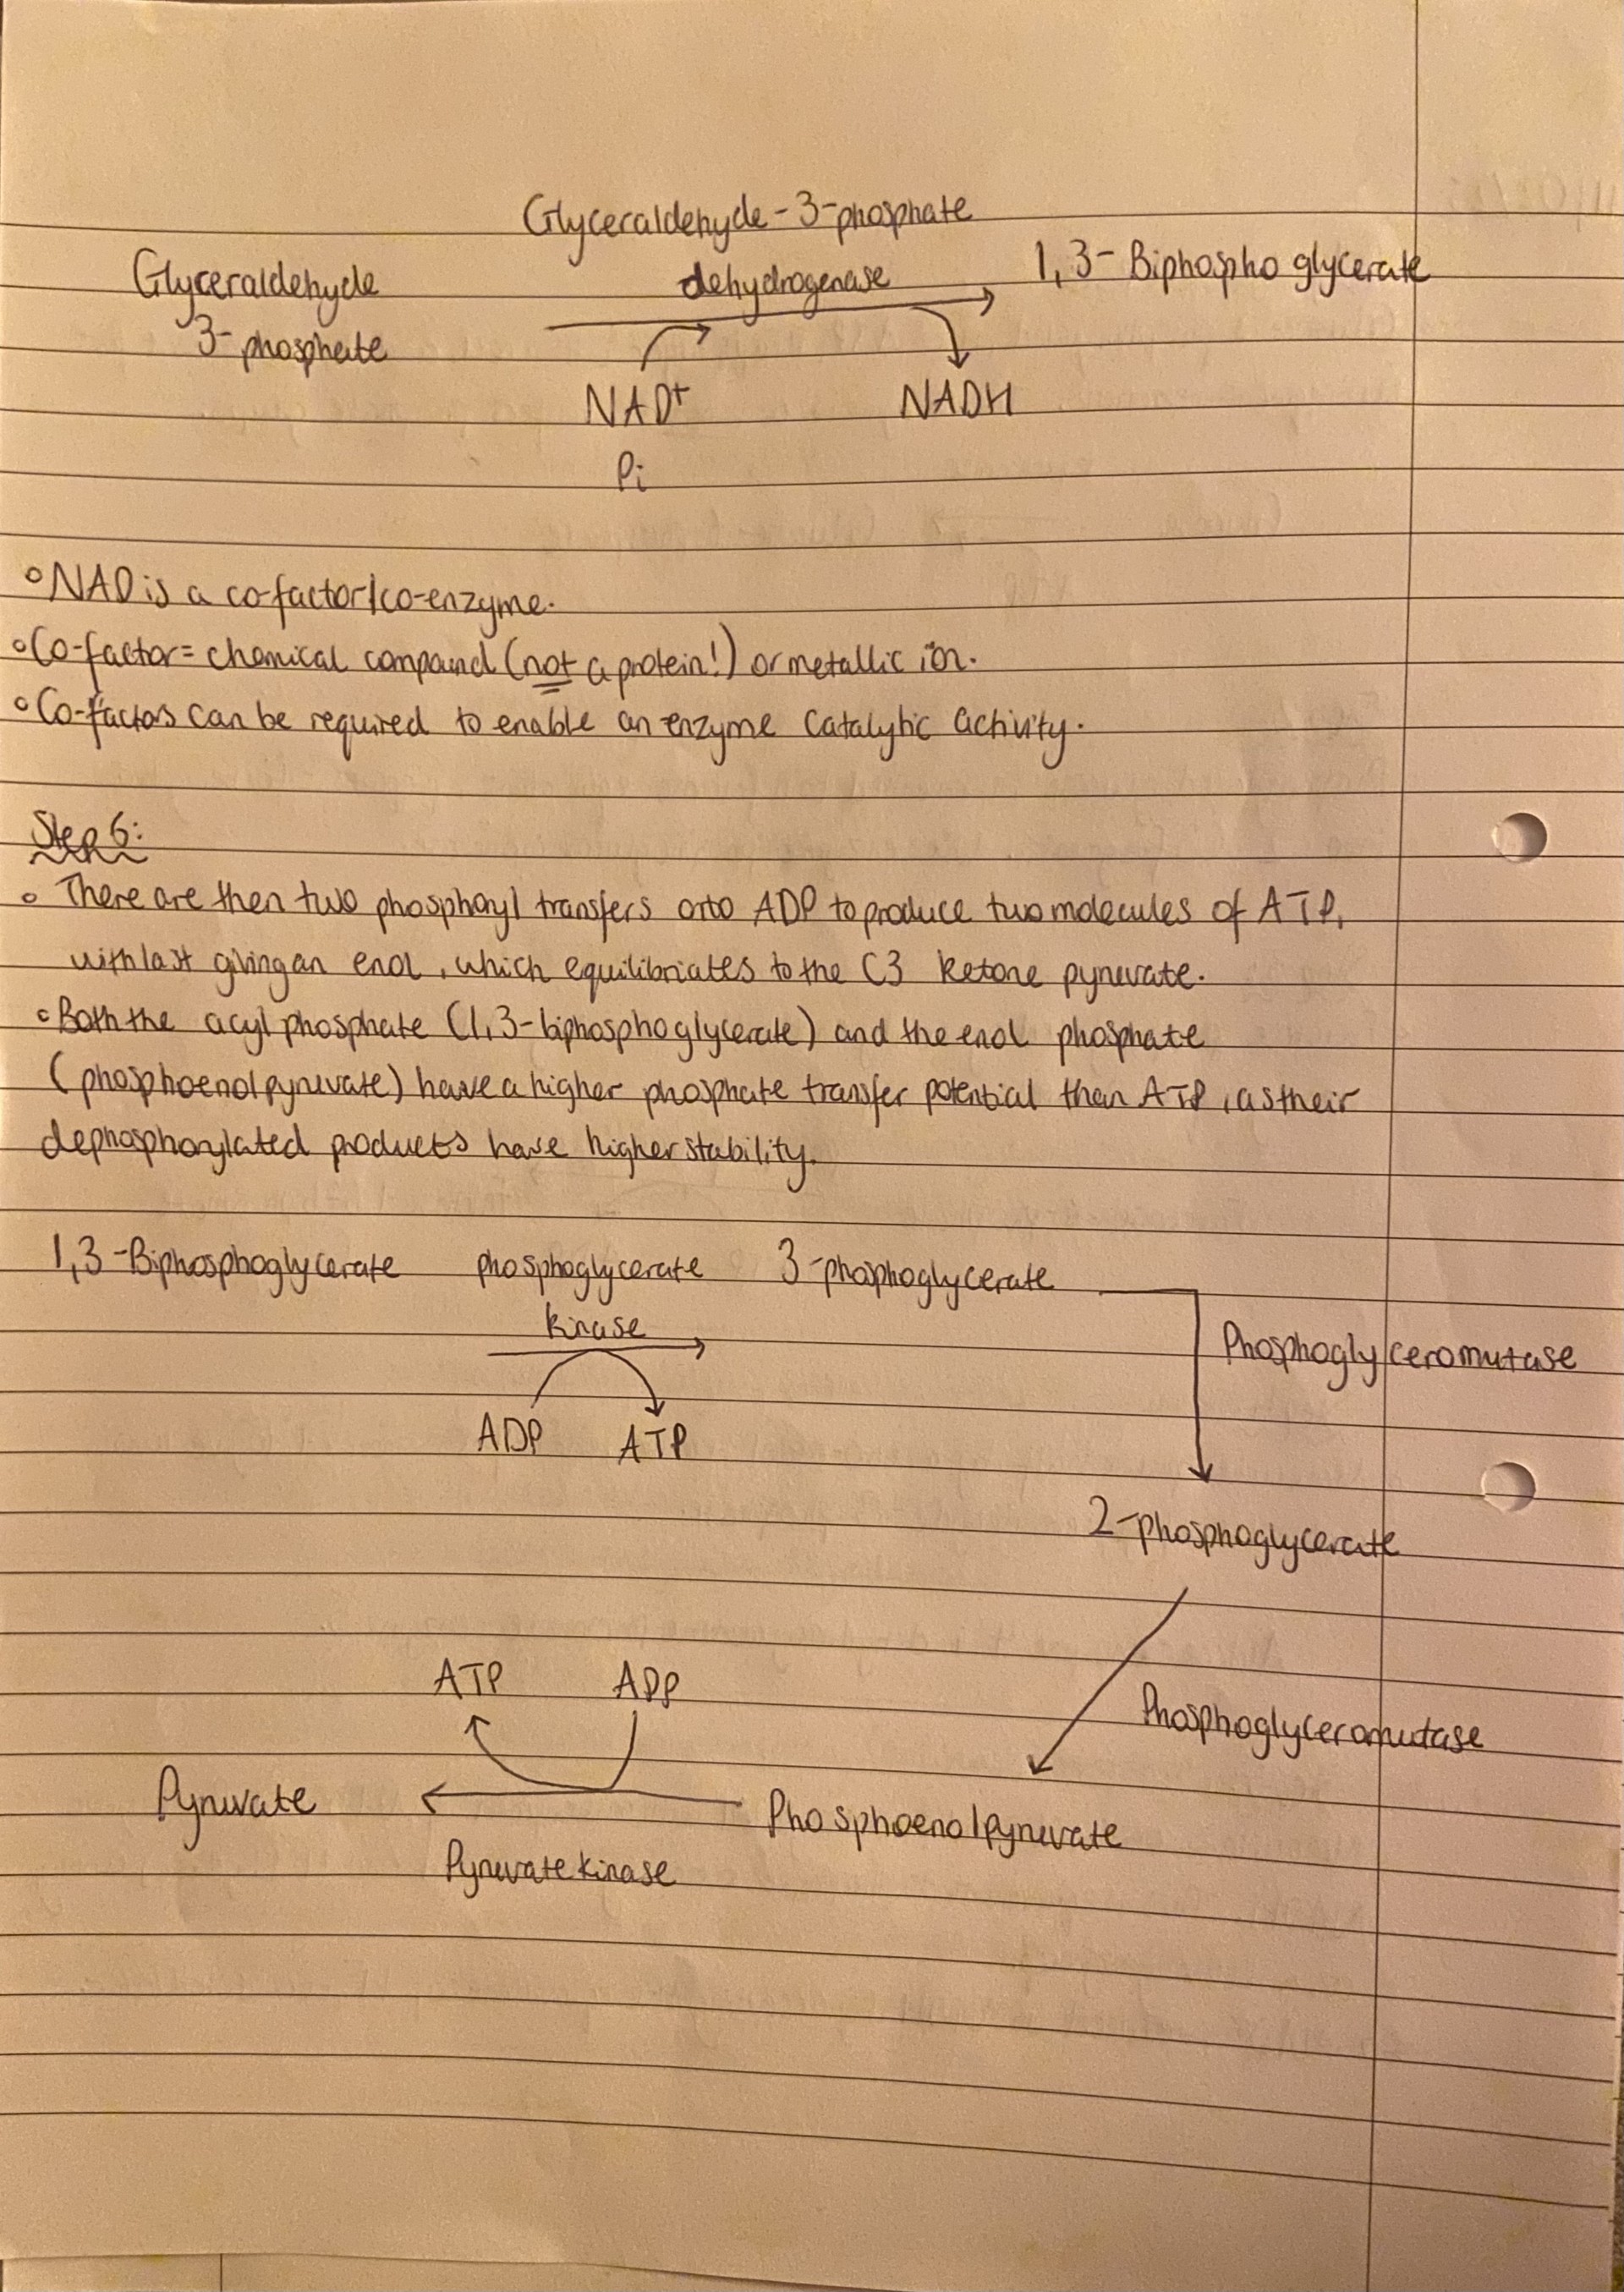 Glyceraldehyde-3-phosphate
Glyceraldehyde dehydrogenase 1,3-Biphosphoglycerate
3-phosphate
NAD+ NADH
Pi
◦NAD is a co-factor/co-enzyme.
◦Co-factor= chemical compound (not a protein!) or metallic ion.
◦Co-factors can be required to enable an enzyme catalytic activity.
Step 6:
◦ There are then two phosphoryl transfers onto ADP to produce two molecules of ATP,
with last giving an enol, which equilibriates to the C3 ketone pyruvate.
◦Both the acyl phosphate (1,3-biphosphoglycerate) and the enol phosphate
(phosphoenolpyruvate) have a higher phosphate transfer potential than ATP, as their
dephosphorylated products have higher stability.
1,3-Biphosphoglycerate phosphoglycerate 3-phosphoglycerate
kinase
Phosphoglyceromutase
ADP ATP
2-phosphoglycerate
ATP ADP
Phosphoglyceromutase
Pyruvate Phosphoenolpyruvate
Pyruvate kinase